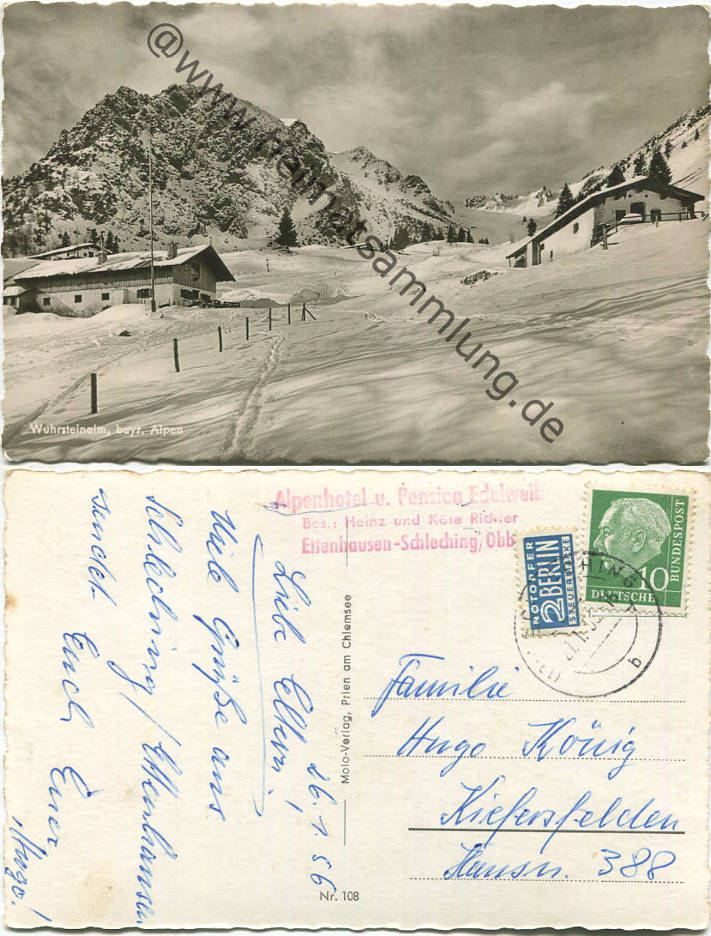 @www.heimatsammlung.de
Wuhrsteinalm, bayr. Alpen
Alpenhotel u. Pension Edelweiß
Bes.: Heinz und Käte Richter
Ettenhausen-Schleching/Obb
NOTOPFER
2 BERLIN
STEUERMARKE
DEUTSCHE
BUNDESPOST
10
26.1.56
Liebe Eltern!
Viele Grüße aus
Schleching/Ettenhausen
sendet Euch Euer
Hugo!
Molo-Verlag, Prien am Chiemsee
Nr. 108
Familie
Hugo König
Kiefersfelden
Hausn. 388